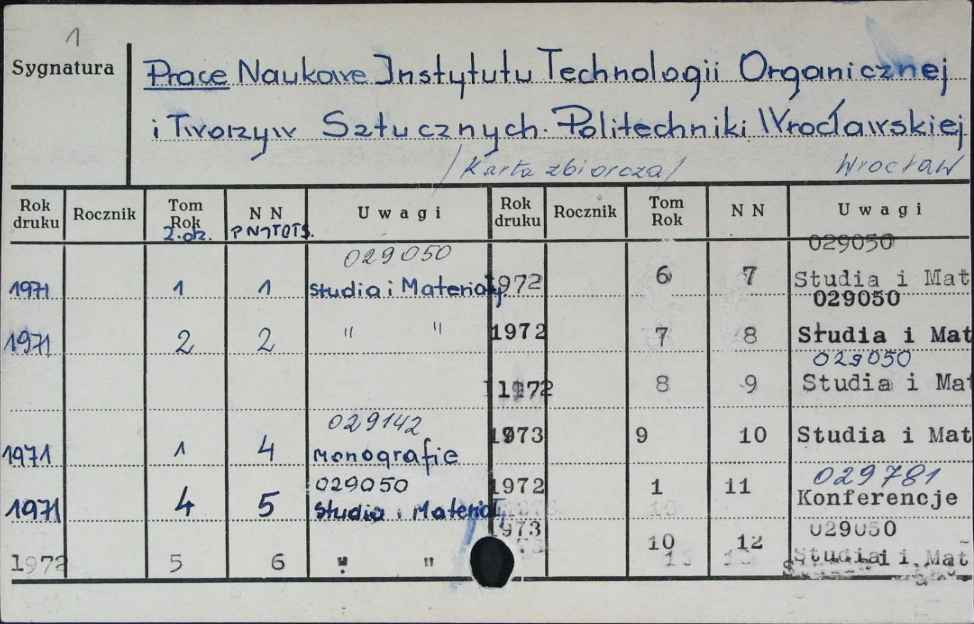 1
Sygnatura
Prace Naukowe Instytutu Technologii Organicznej
i Tworzyw Sztucznych. Politechniki Wrocławskiej.
/Karta zbiorcza/ Wrocław
Rok druku Rocznik Tom Rok N N U w a g i Rok druku Rocznik Tom Rok N N U w a g i
029050 029050
1971 1 1 Studia i Materiały. 1972 6 7 Studia i Mat
029050
1971 2 2 " " 1972 7 8 Studia i Mat
029050
1972 8 9 Studia i Mat
029142
1971 1 4 Monografie 1973 9 10 Studia i Mat
029050 029781
1971 4 5 Studia i Materiał 1972 1 11 Konferencje
029050
1972 5 6 " " 1973 10 12 Studia i Mat